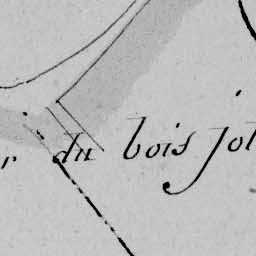 r du bois jol